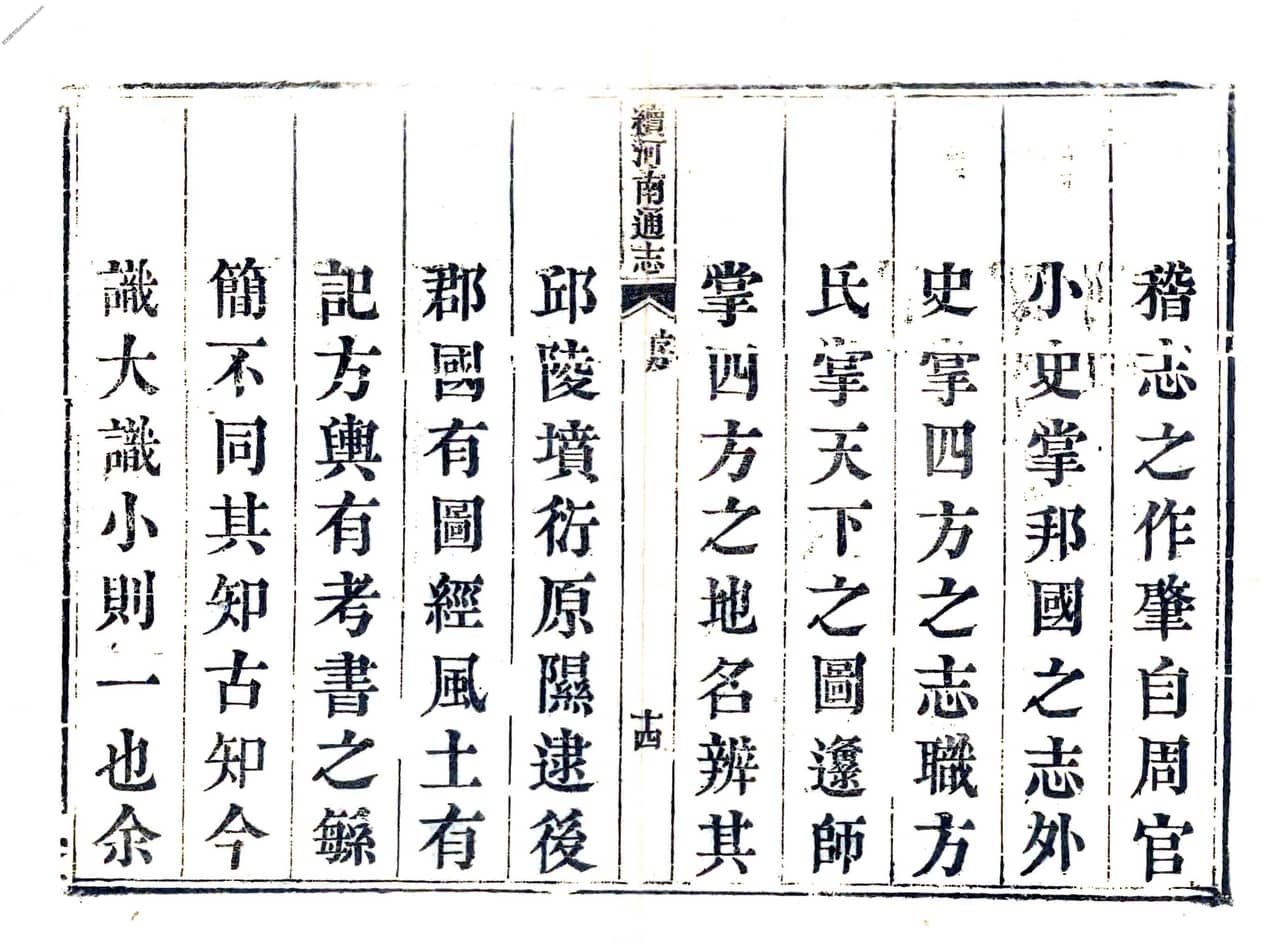 稽志之作肇自周官
小史掌邦國之志外
史掌四方之志職方
氏掌天下之圖邍師
掌四方之地名辨其
續河南通志
序
十四
邱陵墳衍原隰逮後
郡國有圖經風土有
記方輿有考書之緐
簡不同其知古知今
識大識小則一也余